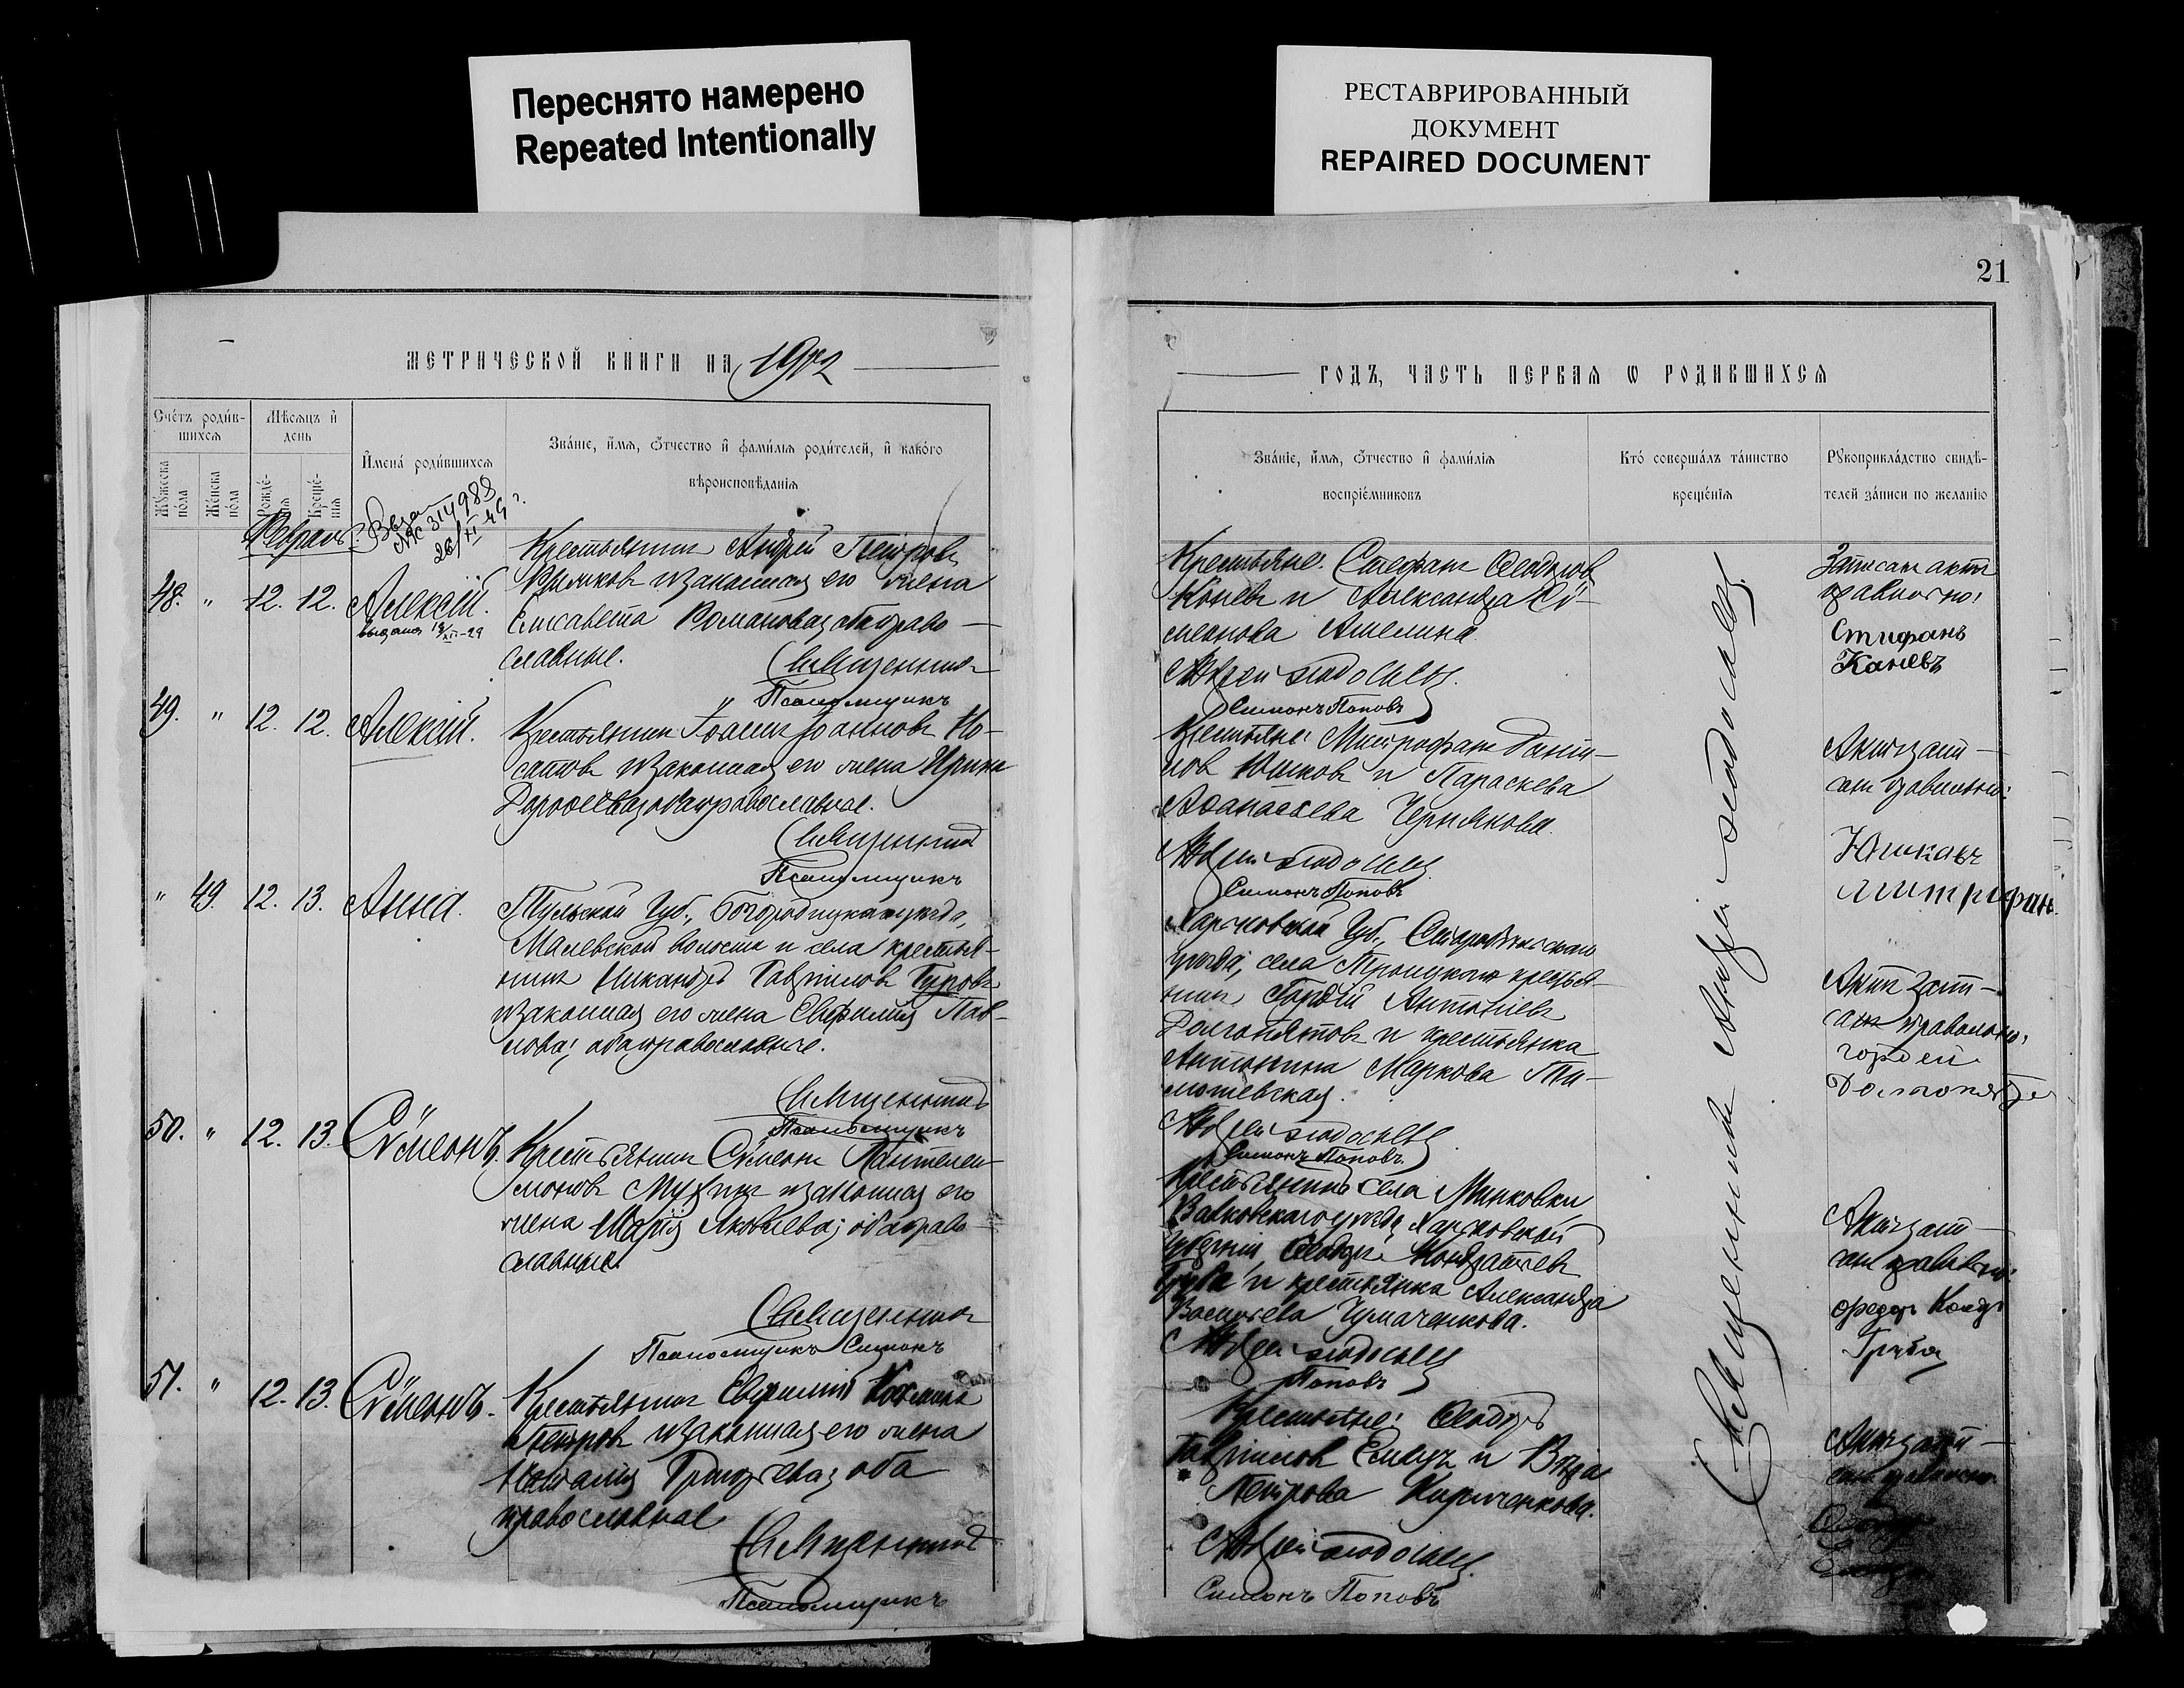 Переснято намерено
Repeated Intentionally
РЕСТАВРИРОВАННЫЙ
ДОКУМЕНТ
REPAIRED DOCUMENT
21
МЕТРИЧЕСКОЙ КНИГИ НА 1912
ГОДЪ, ЧАСТЬ ПЕРВАЯ Ѡ РОДИВШИХСЯ
Счетъ родив-
шихся
Мѣсяцъ и
день
Имена родившихся
Званіе, имя, отчество и фамилія родителей, и какого
вѣроисповѣданія
Мужеска
пола
Женска
пола
Рожде-
нія
Креще-
нія
Званіе, имя, отчество и фамилія
воспріемниковъ
Кто совершалъ таинство
крещенія
Рукоприкладство свидѣ-
телей записи по желанію
Февраль.
48. " 12. 12. Алексій.
Крестьянинъ Андрей Петровъ
и законная его жена
Елисавета Романова; оба право-
славные.
Священникъ
Псаломщикъ
Крестьяне: Стефанъ Ѳеодоровъ
Коневъ и Александра Сѵ-
меонова
Андрей
Симонъ Поповъ
Записанъ актъ
правильно:
Стифанъ
Каневъ
49. " 12. 12. Алексій.
Крестьянинъ Іоаннъ Іоанновъ Но-
и законная его жена Ирина
Дороѳеева; оба православные.
Священникъ
Псаломщикъ
Крестьяне: Митрофанъ
Юшковъ и Параскева
Аѳанасьева Чернякова.
Андрей
Симонъ Поповъ
Актъ запи-
санъ правильно:
Юшкавъ
Митрофанъ.
" 49. 12. 13. Анна.
Тульской губ., Богородицкаго уѣзда,
Малевской волости и села крестья-
нинъ Никандръ Гавріиловъ Гуровъ
и законная его жена Евфимія Пав-
лова; оба православные.
Священникъ
Псаломщикъ
Харьковской губ., Старобѣльскаго
уѣзда, села Троицкаго крестья-
нинъ Гордій Антоніевъ
Долгопятовъ и крестьянка
Антонина Маркова Ти-
мошевская.
Андрей
Симонъ Поповъ
Актъ запи-
санъ правильно:
гордей
50. " 12. 13. Сѵмеонъ.
Крестьянинъ Сѵмеонъ Пантелеи-
моновъ и законная его
жена Марія Яковлева; оба право-
славные.
Священникъ
Псаломщикъ Симонъ
Крестьянинъ села Минковки
Валковскаго уѣзда, Харьковской
губерніи, Ѳеодоръ Кондратьевъ
Груба и крестьянка Александра
Васильева Чумаченкова.
Андрей
Поповъ
Актъ запи-
санъ правильно:
федоръ
Груба
51. " 12. 13. Сѵмеонъ.
Крестьянинъ Евфимій Косминъ
Петровъ и законная его жена
Наталія Григорьева; оба
православные
Священникъ
Псаломщикъ
Крестьяне: Ѳеодоръ
Гавріиловъ и Вѣра
Петрова Кириченкова.
Андрей
Симонъ Поповъ
Актъ запи-
санъ правильно
Священникъ Андрей